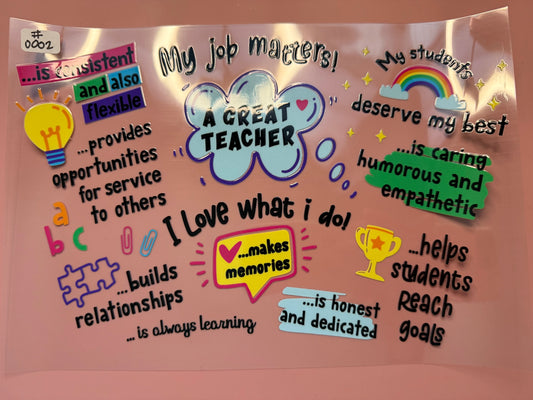 #
0002
My job matters!
My students
deserve my best
...is consistent
and also
flexible
A GREAT
TEACHER
...provides
opportunities
for service
to others
...is caring
humorous and
empathetic
a
b c
I love what i do!
...makes
memories
...helps
students
reach
goals
...builds
relationships
...is honest
and dedicated
... is always learning